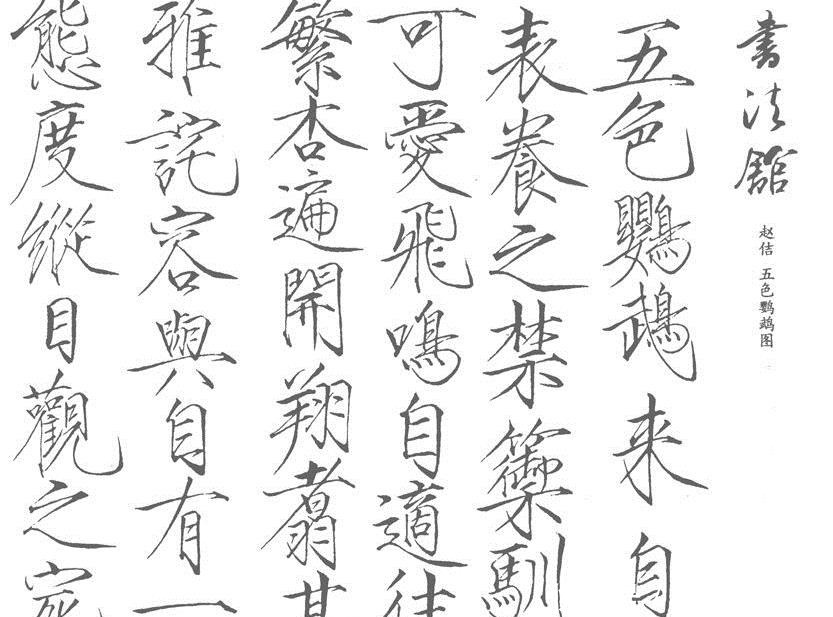 書法館
赵佶 五色鹦鹉图
五色鸚鵡来自
表養之禁籞馴
可愛飛鳴自適往
繁杏遍開翔翥其
雅詫容與自有一
態度縱目觀之宛